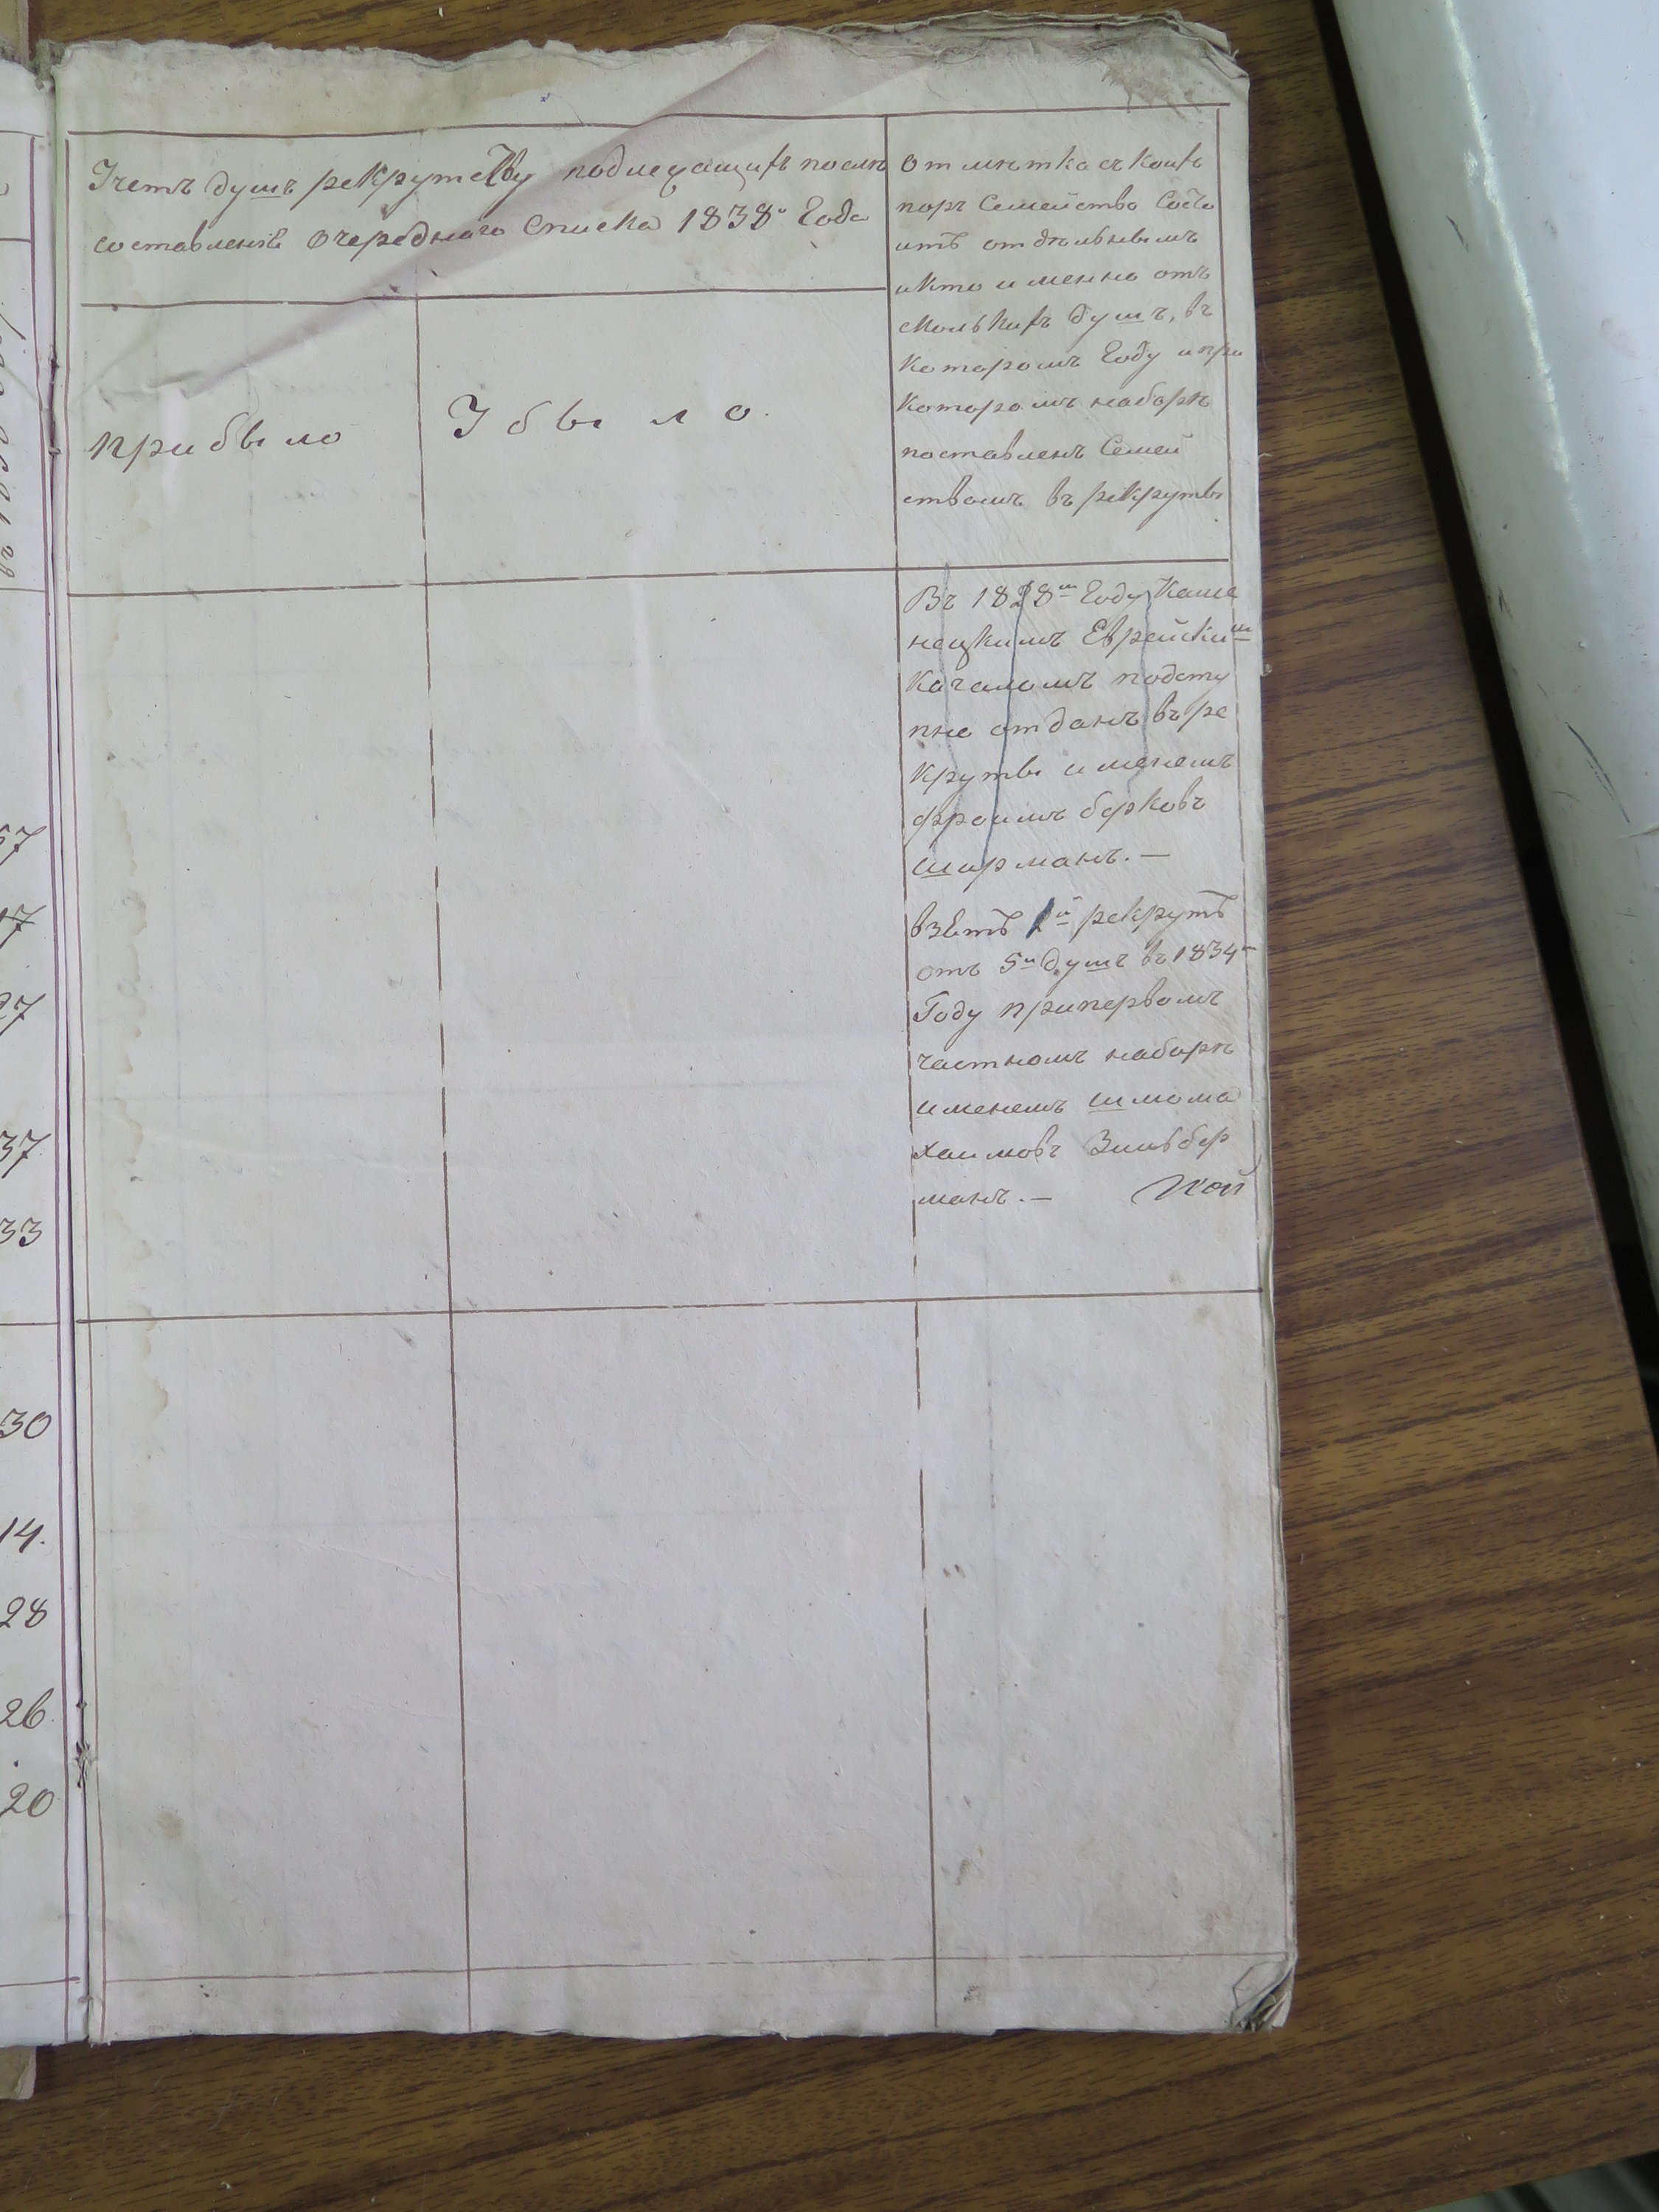 57
17
27
37
33
30
14.
28
26
20
Учетъ душъ рекрутству подлежащихъ послѣ
составленія очереднаго списка 1838го Года
прибыло
Убыло.
Отмѣтка съ коихъ
поръ Семейство Состо
итъ отдѣльнымъ
и кто именно отъ
сколькихъ душъ, въ
которомъ Году и при
которомъ наборѣ
поставленъ Семей
ствомъ въ рекруты
Въ 1828м Году Каме
нецкимъ Еврейским
Кагаломъ подсту
пно отданъ въ ре
круты именемъ
Фроимъ берковъ
Ширманъ. —
взятъ 1й рекрутъ
отъ 5и душъ въ 1834м
Году при первомъ
частномъ наборѣ
именемъ Шлома
Хаимовъ Зильбер
манъ. —